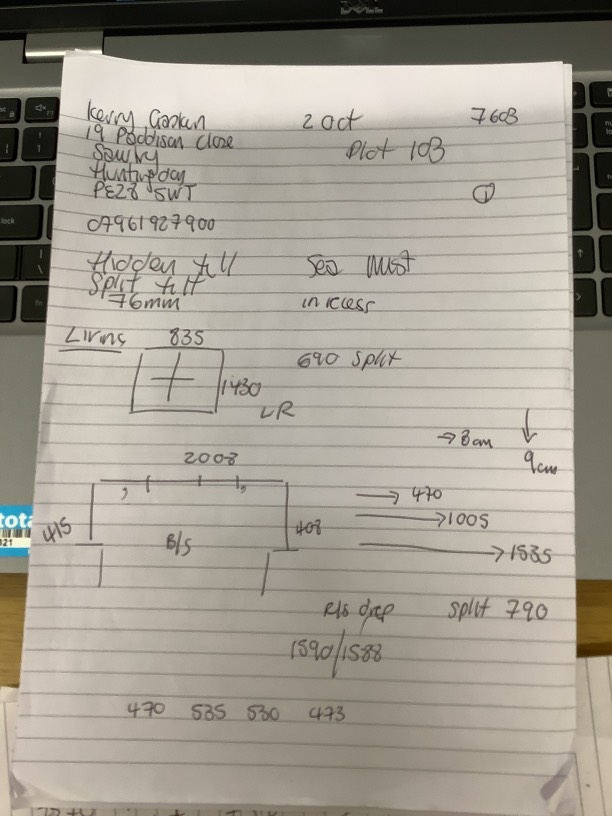 DELL
Kerry 2 Oct 7603
19 Paddison Close Plot 103
Sawtry
Huntingdon
PE28 5WT ①
07961927900
Hidden tilt Sea Mist
Split tilt in recess
76mm
Living 835
690 Split
1430
LR
→ 8cm ↓
9cm
2008
→ 470
415 B/S 408 → 1005
→ 1535
R/s drop split 790
1590/1588
470 535 530 473
tota
321